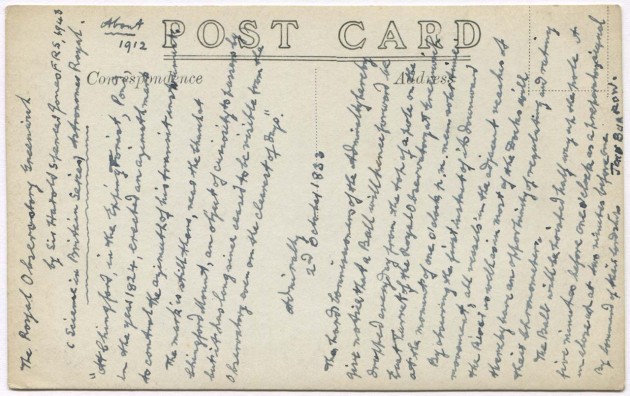 About
1912
POST CARD
Correspondence
Address
The Royal Observatory Greenwich
by Sir Harold Spencer Jones FRS, 1943
(Science in Britain Series) Astronomer Royal.
"At Chingford, in the Essex, Pond
in the year 1824, erected an azimuth mark
to control the azimuth of his transit instrument.
The mark is still there, near the
Chingford Mount, an object of curiosity to passers by
but it has long since ceased to be visible from the
Observatory even on the clearest of days."
Admiralty
2d October 1833
The Lords Commissioners of the Admiralty hereby
give notice that a Ball will henceforward be
dropped every day from the top of a pole on the
East Turret of the Royal Observatory at Greenwich
at the moment of one o'clock p.m. mean solar time.
By observing the first instant of its downward
movement, all vessels in the adjacent reaches of
the River as well as in most of the docks will
thereby have an opportunity of regulating and rating
their chronometers.
The Ball will be hoisted half way up the pole at
five minutes before one o'clock as a preparatory signal
and close up at two minutes before one.
By command of their Lordships
John Barrow.